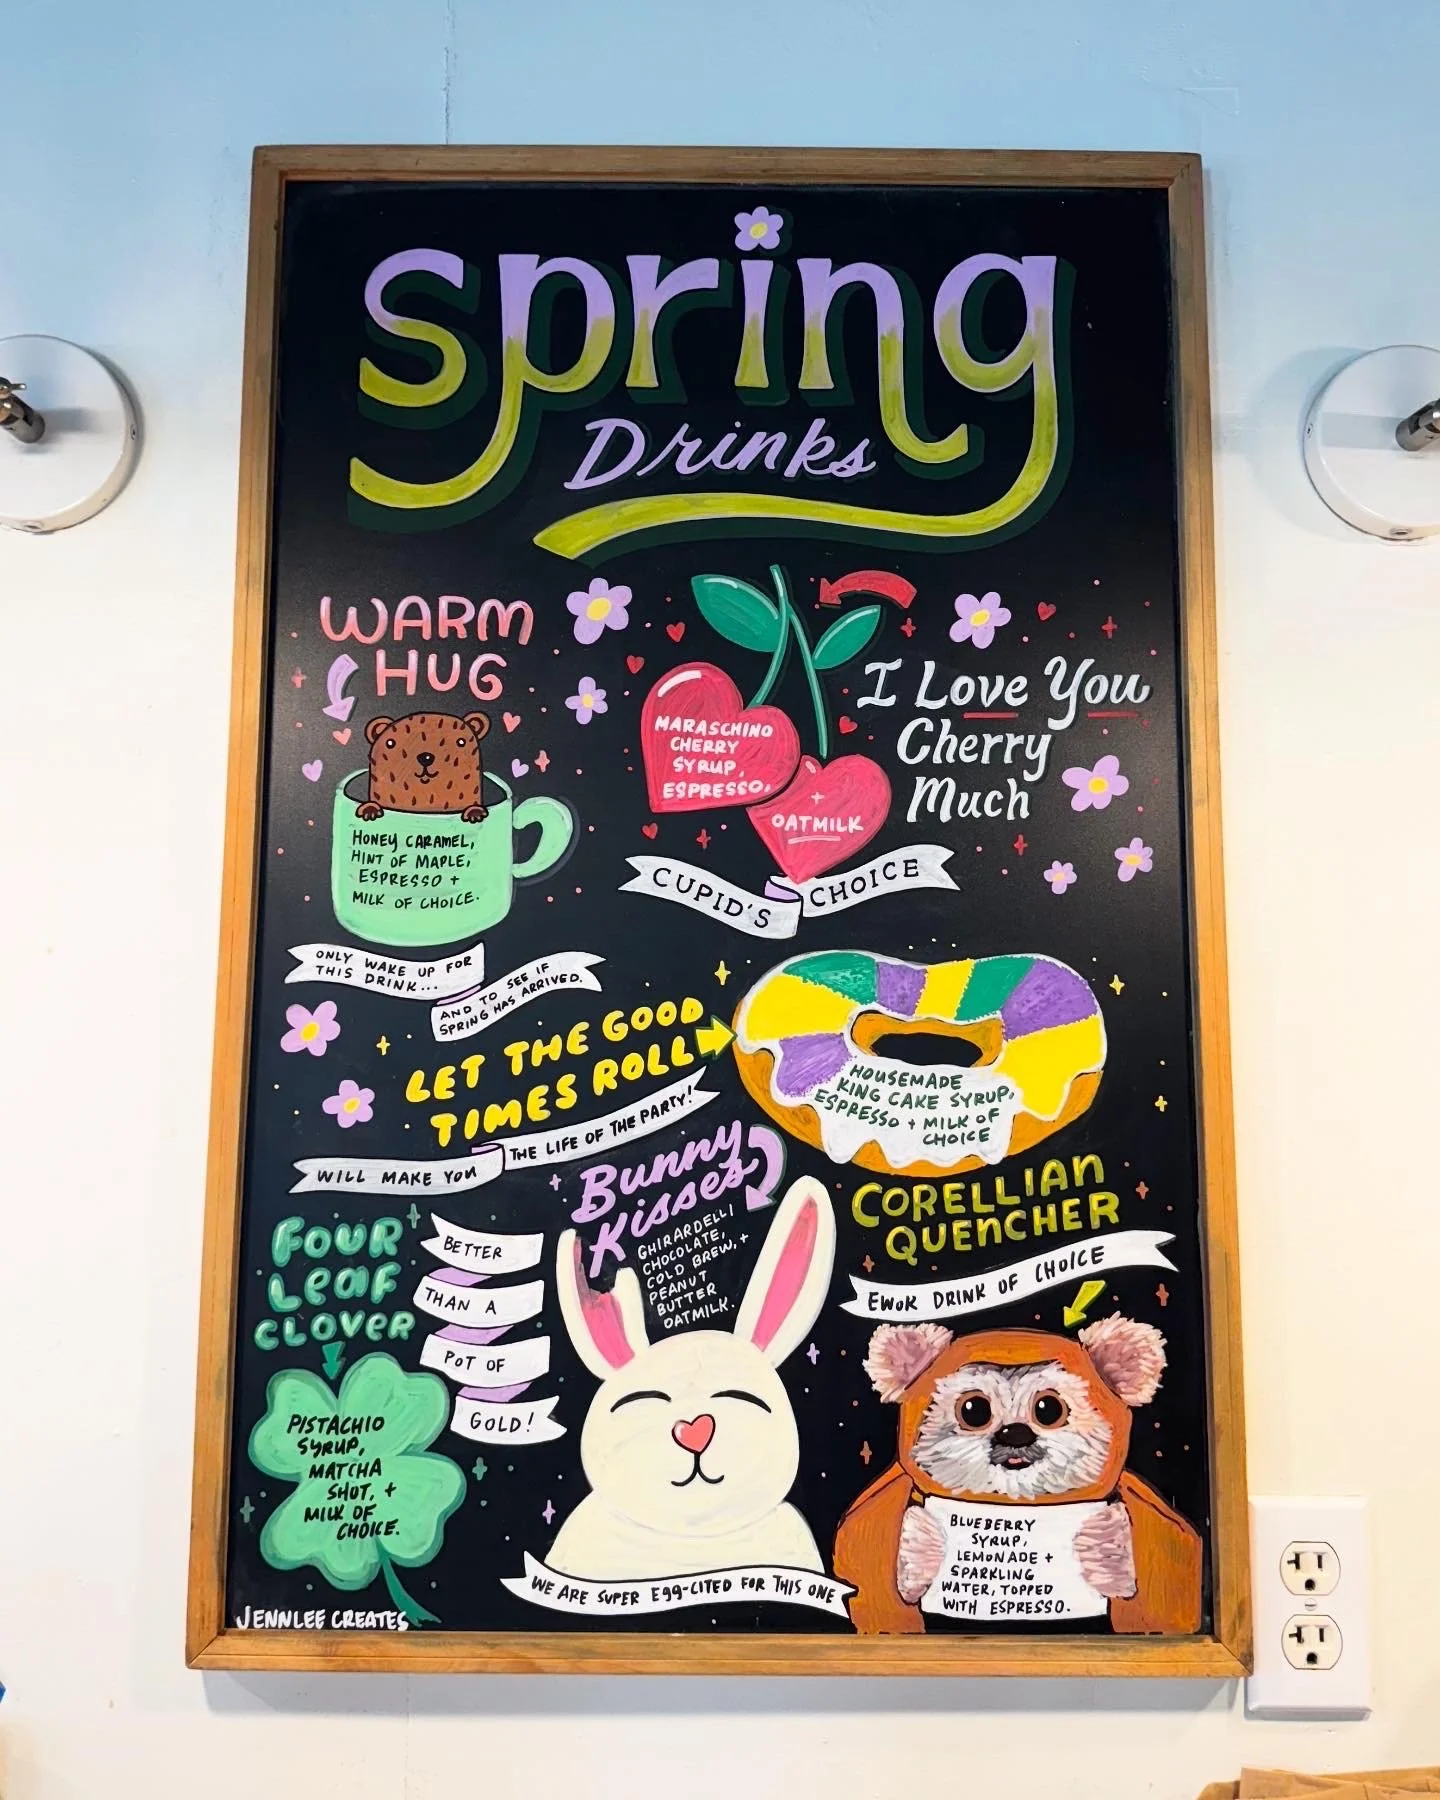 spring
Drinks
WARM
HUG
HONEY CARAMEL,
HINT OF MAPLE,
ESPRESSO +
MILK OF CHOICE.
ONLY WAKE UP FOR
THIS DRINK...
AND TO SEE IF
SPRING HAS ARRIVED.
I Love You
Cherry
Much
MARASCHINO
CHERRY
SYRUP,
ESPRESSO,
+
OATMILK
CUPID'S CHOICE
LET THE GOOD
TIMES ROLL
WILL MAKE YOU THE LIFE OF THE PARTY!
HOUSEMADE
KING CAKE SYRUP,
ESPRESSO + MILK OF
CHOICE
FOUR
LEAF
CLOVER
BETTER
THAN A
POT OF
GOLD!
PISTACHIO
SYRUP,
MATCHA
SHOT, +
MILK OF
CHOICE.
Bunny
Kisses
GHIRARDELLI
CHOCOLATE,
COLD BREW, +
PEANUT
BUTTER
OATMILK.
WE ARE SUPER EGG-CITED FOR THIS ONE
CORELLIAN
QUENCHER
EWOK DRINK OF CHOICE
BLUEBERRY
SYRUP,
LEMONADE +
SPARKLING
WATER, TOPPED
WITH ESPRESSO.
JENNLEE CREATES